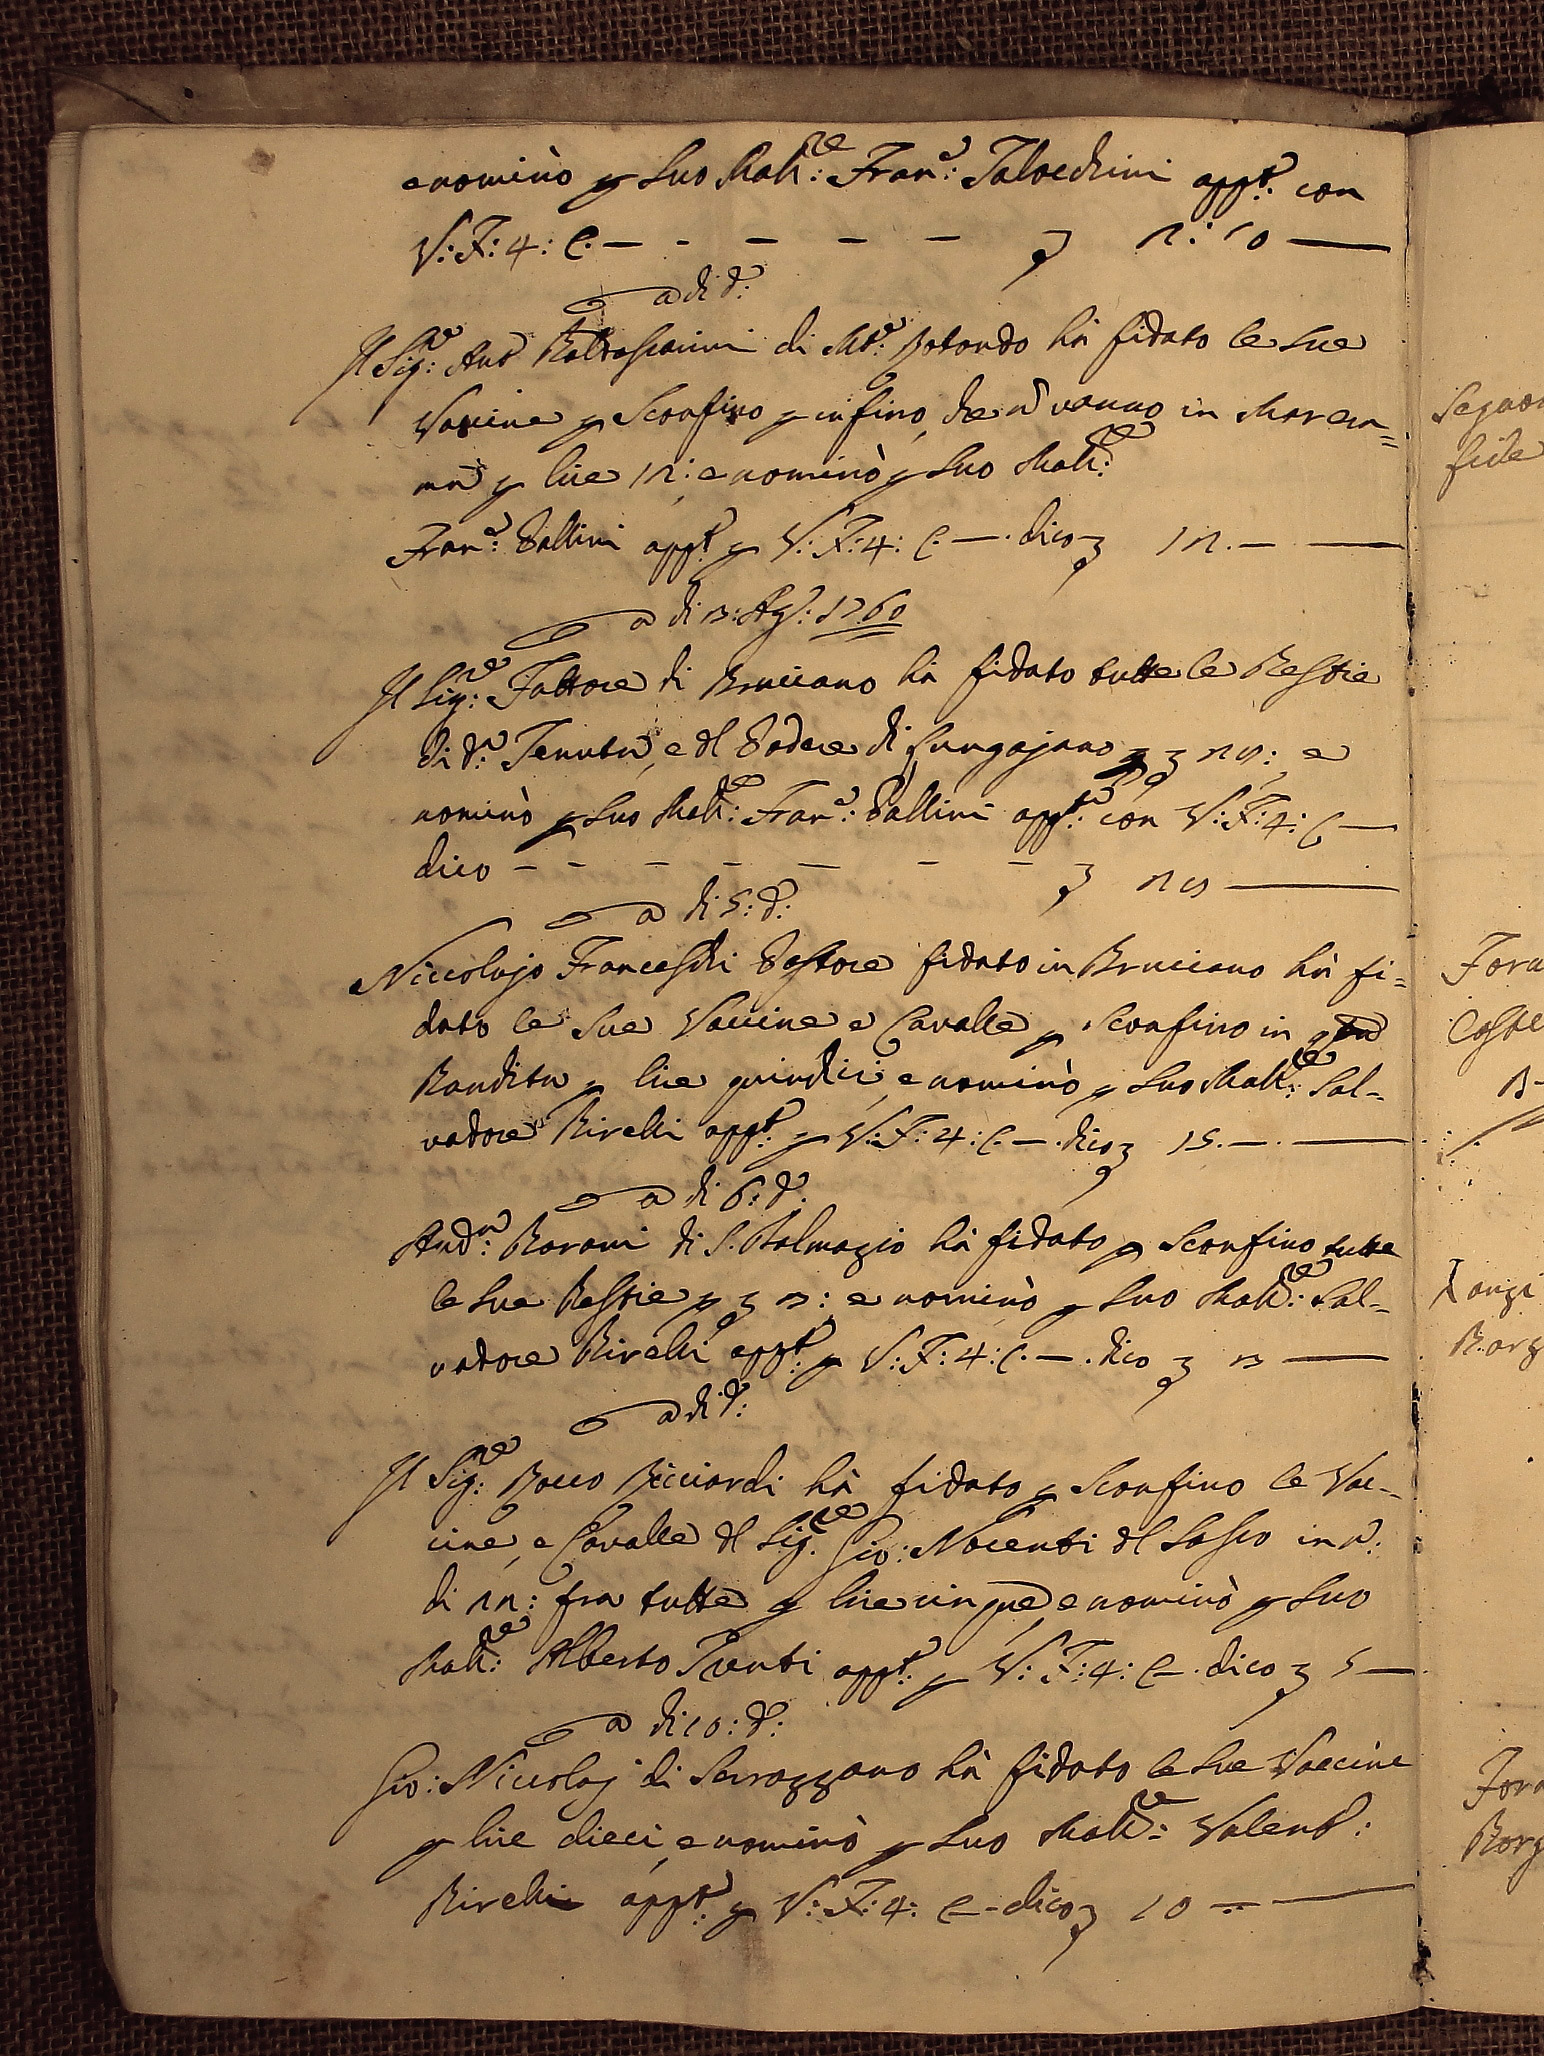 e nominò p suo Mall:re Fran:co Talocchini app:to con
V: F: 4: C. — — — — — £ 2: 10 —
a di d:o
Il Sig:re Ant:o Baldasserini di Mt:e Rotondo hà fidato le sue
Vaccine p Sconfino p infino, che n vanno in Marem=
ma p lire 12: e nominò p suo Mall:re
Fran:co Pallini app:to p V: F: 4: C. —. dico £ 12. —
a di 3: Ag:to 1760
Il Sig:re Fattore di Bruciano hà fidato tutte le Bestie
di d:a Tenuta, e dl Podere di Lungajano p £ 20:, e
nominò p suo Mall:re Fran:co Pallini app:to con V: F: 4: C —
dico — — — — — — — £ 20 —
a di 5: d:o
Niccolajo Franceschi Pastore fidato in Bruciano hà fi=
dato le sue Vaccine e Cavalle p Sconfino in
Bandita p lire quindici, e nominò p suo Mall:re Sal=
vadore Birelli app:to p V: F: 4: C. —. dico £ 15. —
a di 6: d:o
And:a Barani di S. Dalmazio hà fidato p Sconfino tutte
le sue Bestie p £ 3: e nominò p suo Mall:re Sal=
vadore Birelli app:to p V: F: 4: C. —. dico £ 3 —
a di d:o
Il Sig:re Rocco Ricciardi hà fidato p Sconfino le Vac=
cine, e Cavalle dl Sig:re Gio: Nocenti dl Sasso in n:o
di 12: fra tutte p lire cinque, e nominò p suo
Mall:re Alberto Punti app:to p V: F: 4: C —. dico £ 5 —
a di 10: d:o
Gio: Niccolaj di Serrazzano hà fidato le sue Vaccine
p lire dieci, e nominò p suo Mall:re Valent:o
Birelli app:to p V: F: 4: C — dico £ 10 —
fide
Borg